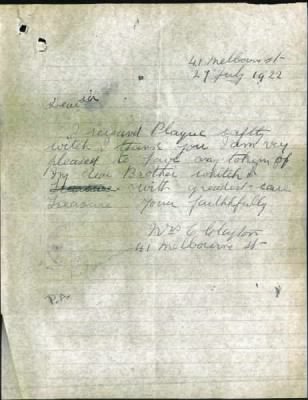 41 Melbourn st
27 July 1922
Dear sir
I received Plaque safly
witch I thank you I am very
pleased to have any tokin of
My dear Brother whitch I
Treasure with greatest care
Treasure Your faithfully
Mrs C Clayton
41 Melbourne st
P.A